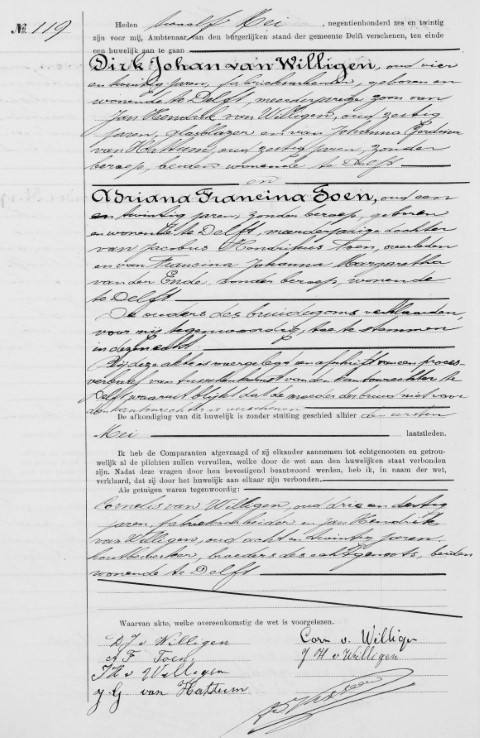 No. 119
Heden twaalf Mei, negentienhonderd zes en twintig
zijn voor mij, Ambtenaar van den burgerlijken stand der gemeente Delft verschenen, ten einde
een huwelijk aan te gaan
Dirk Johan van Willigen, oud vier
en twintig jaren, fabrieksarbeider, geboren en
wonende te Delft, meerderjarige zoon van
Jan Hendrik van Willigen, oud zestig
jaren, glasblazer en van Johanna
van Hattum, oud zestig jaren, zonder
beroep, beiden wonende te Delft
en
Adriana Francina Toen, oud een
en twintig jaren, zonder beroep, geboren
en wonende te Delft, meerderjarige dochter
van Jacobus Hendrikus Toen, overleden
en van Francina Johanna Margaretha
van den Ende, zonder beroep, wonende
te Delft
De ouders des bruidegoms verklaarden
voor mij tegenwoordig, toe te stemmen
in deze echt
Bij deze akte is overgelegd een afschrift van een proces-
verbaal van den kantonrechter te
Delft waaruit blijkt dat de moeder der bruid niet voor
den kantonrechter is verschenen
De afkondiging van dit huwelijk is zonder stuiting geschied alhier den eersten
Mei laatstleden.
Ik heb de Comparanten afgevraagd of zij elkander aannemen tot echtgenooten en getrou-
welijk al de plichten zullen vervullen, welke door de wet aan den huwelijken staat verbonden
zijn. Nadat deze vragen door hen bevestigend beantwoord werden, heb ik, in naam der wet,
verklaard, dat zij door het huwelijk aan elkaar zijn verbonden.
Als getuigen waren tegenwoordig:
Cornelis van Willigen, oud drie en dertig
jaren, fabrieksarbeider en Jan Hendrik
van Willigen, oud acht en twintig jaren,
houtbewerker, broeders des echtgenoots, beiden
wonende te Delft
Waarvan akte, welke overeenkomstig de wet is voorgelezen.
D J v Willigen
Cor v. Willigen
A F Toen
J H v Willigen
J H v Willigen
J G van Hattum